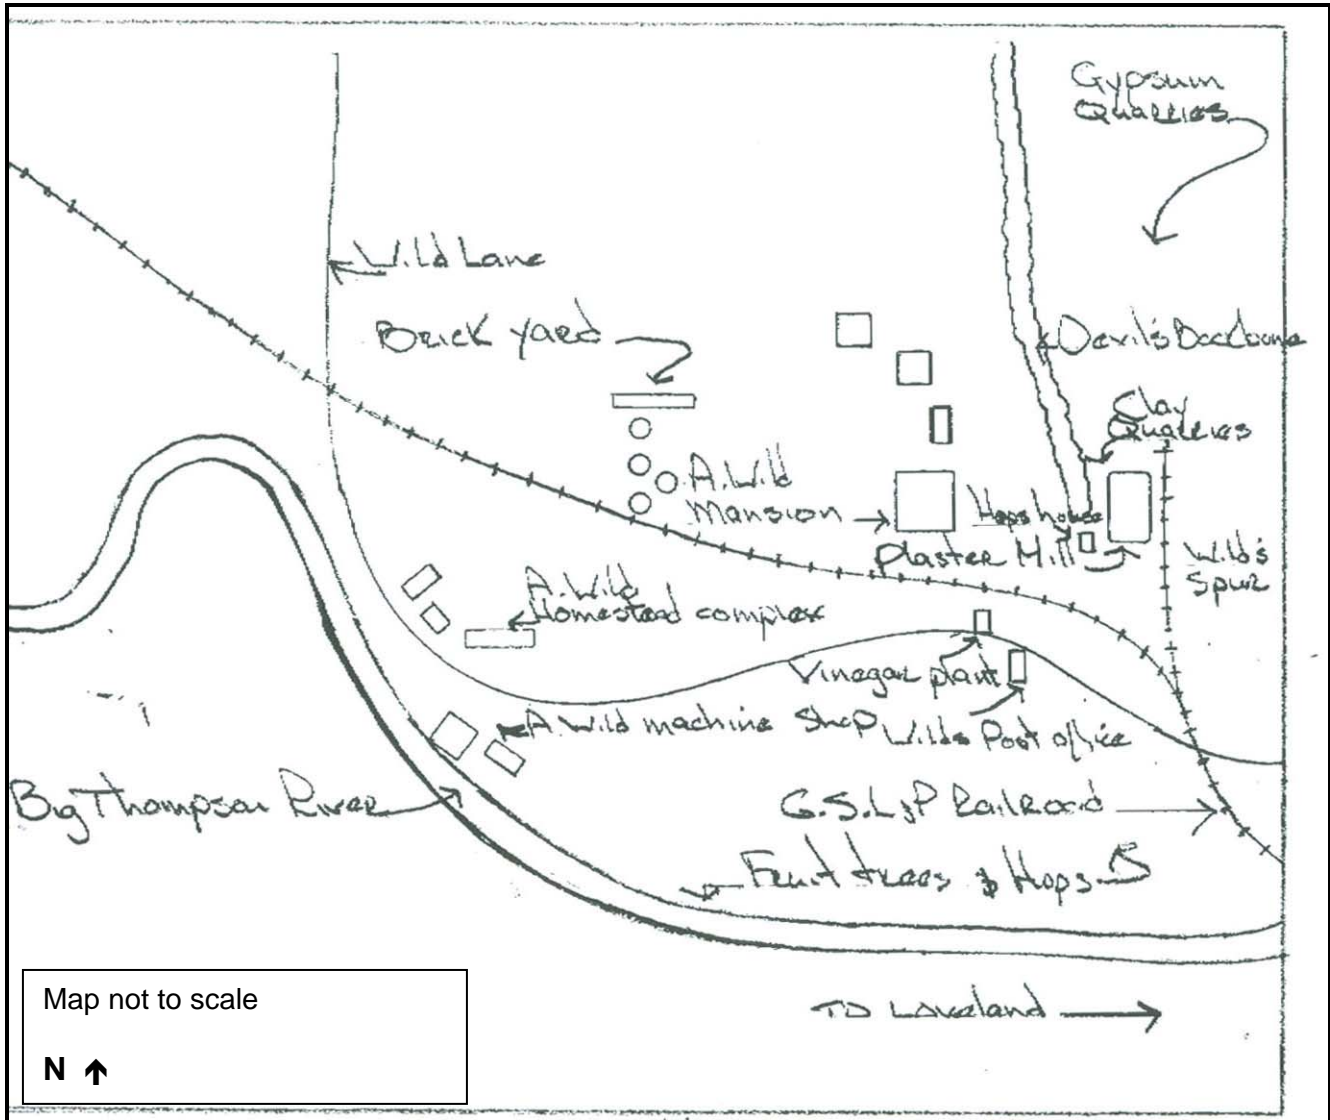 Gypsum
Quarries
Wild Lane
Brick yard
Devil's Backbone
Clay
Quarries
A. Wild
Mansion
Hops house
Plaster Mill
Wild's
Spur
A. Wild
Homestead complex
Vinegar plant
A. Wild machine Shop
Wilds Post office
Big Thompson River
G.S.L.&P Railroad
Fruit trees & Hops
TO Loveland
Map not to scale
N